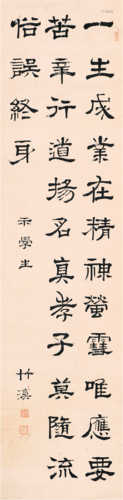 一生成業在精神螢雪唯應要
苦辛行道揚名真孝子莫隨流
俗誤終身
示學生
竹溪